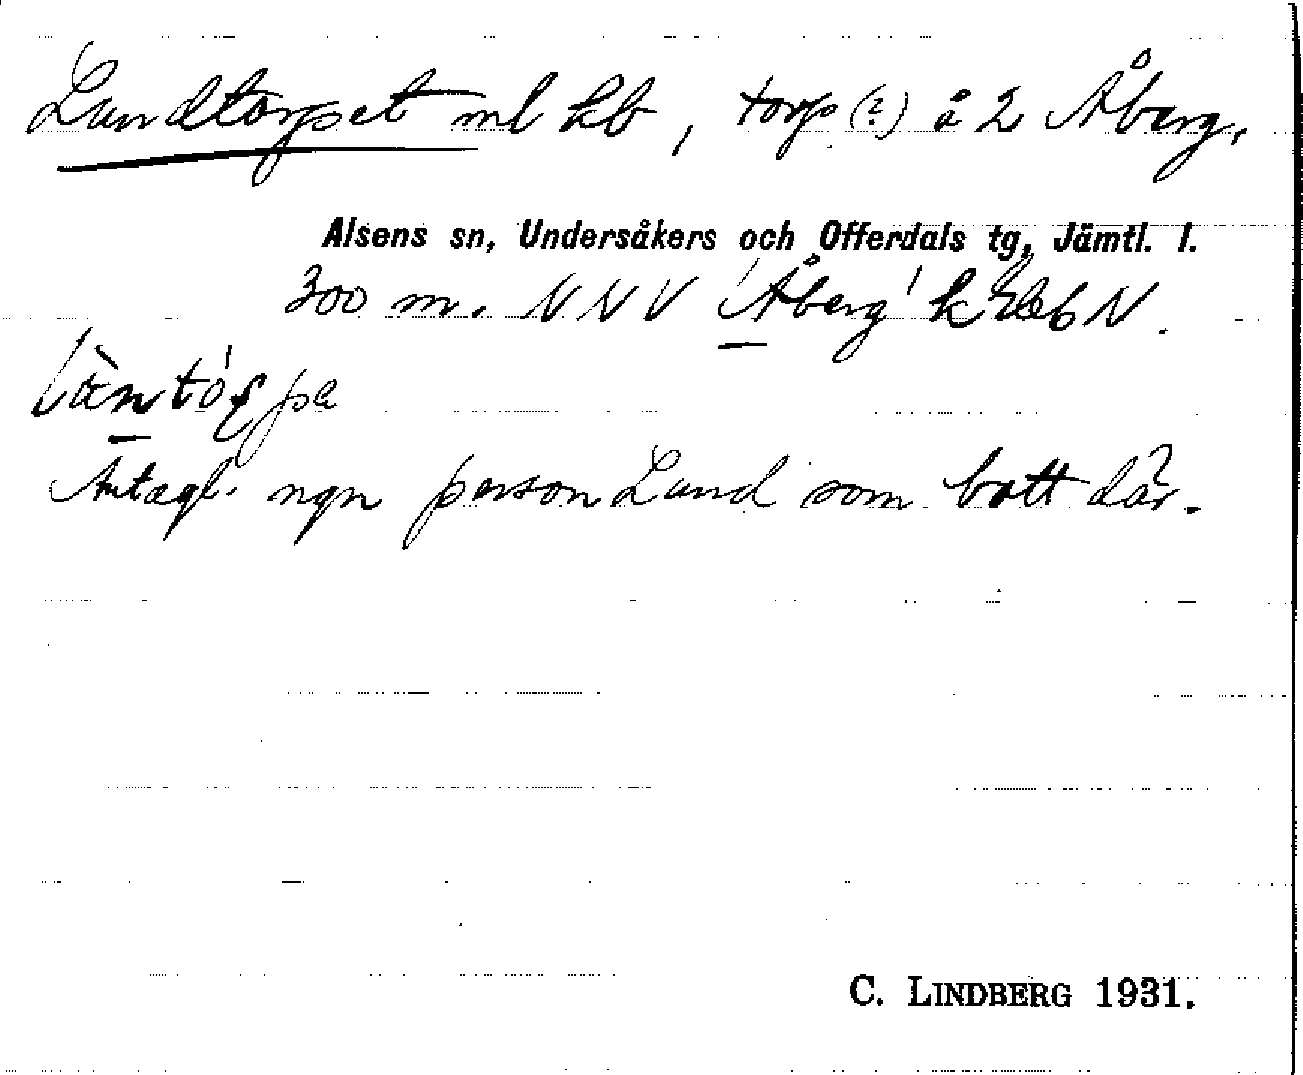 Lundtorpet ml kb, torp (?) å 2 Åberg,
Alsens sn, Undersåkers och Offerdals tg, Jämtl. l.
300 m. NNV 'Åberg' k N.
Antagl. ngn person Lund som bott där.
C. LINDBERG 1931.